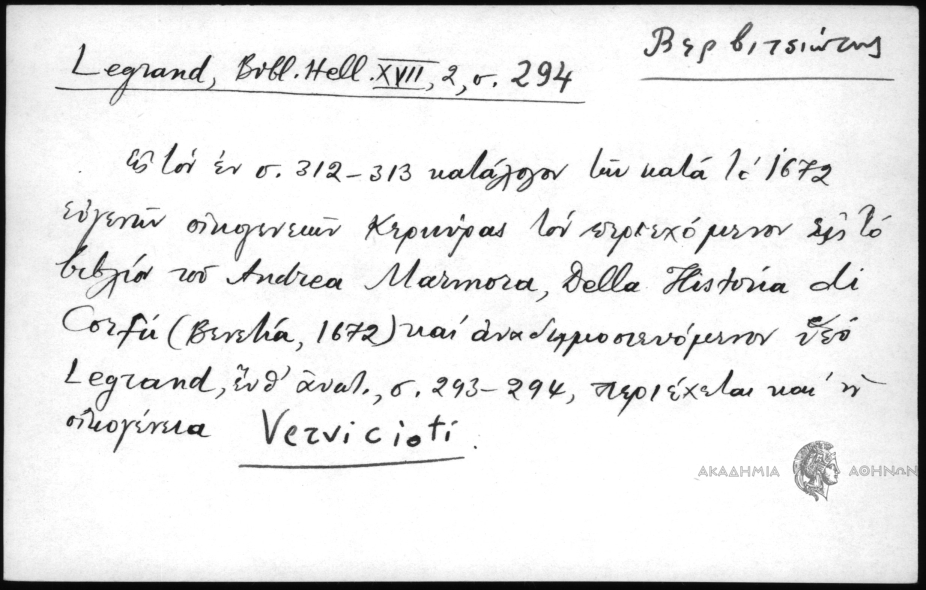 Βερβιτσιώτης
Legrand, Bibl. Hell. XVII, 2, σ. 294
Εἰς τὸν ἐν σ. 312-313 κατάλογον τῶν κατὰ τὸ 1672
εὐγενῶν οἰκογενειῶν Κερκύρας τὸν περιεχόμενον εἰς τὸ
βιβλίον τοῦ Andrea Marmora, Della Historia di
Corfú (Βενετία, 1672) καὶ ἀναδημοσιευόμενον ὑπὸ
Legrand, ἔνθ' ἀνωτ., σ. 293-294, περιέχεται καὶ ἡ
οἰκογένεια Vervicioti.
ΑΚΑΔΗΜΙΑ ΑΘΗΝΩΝ